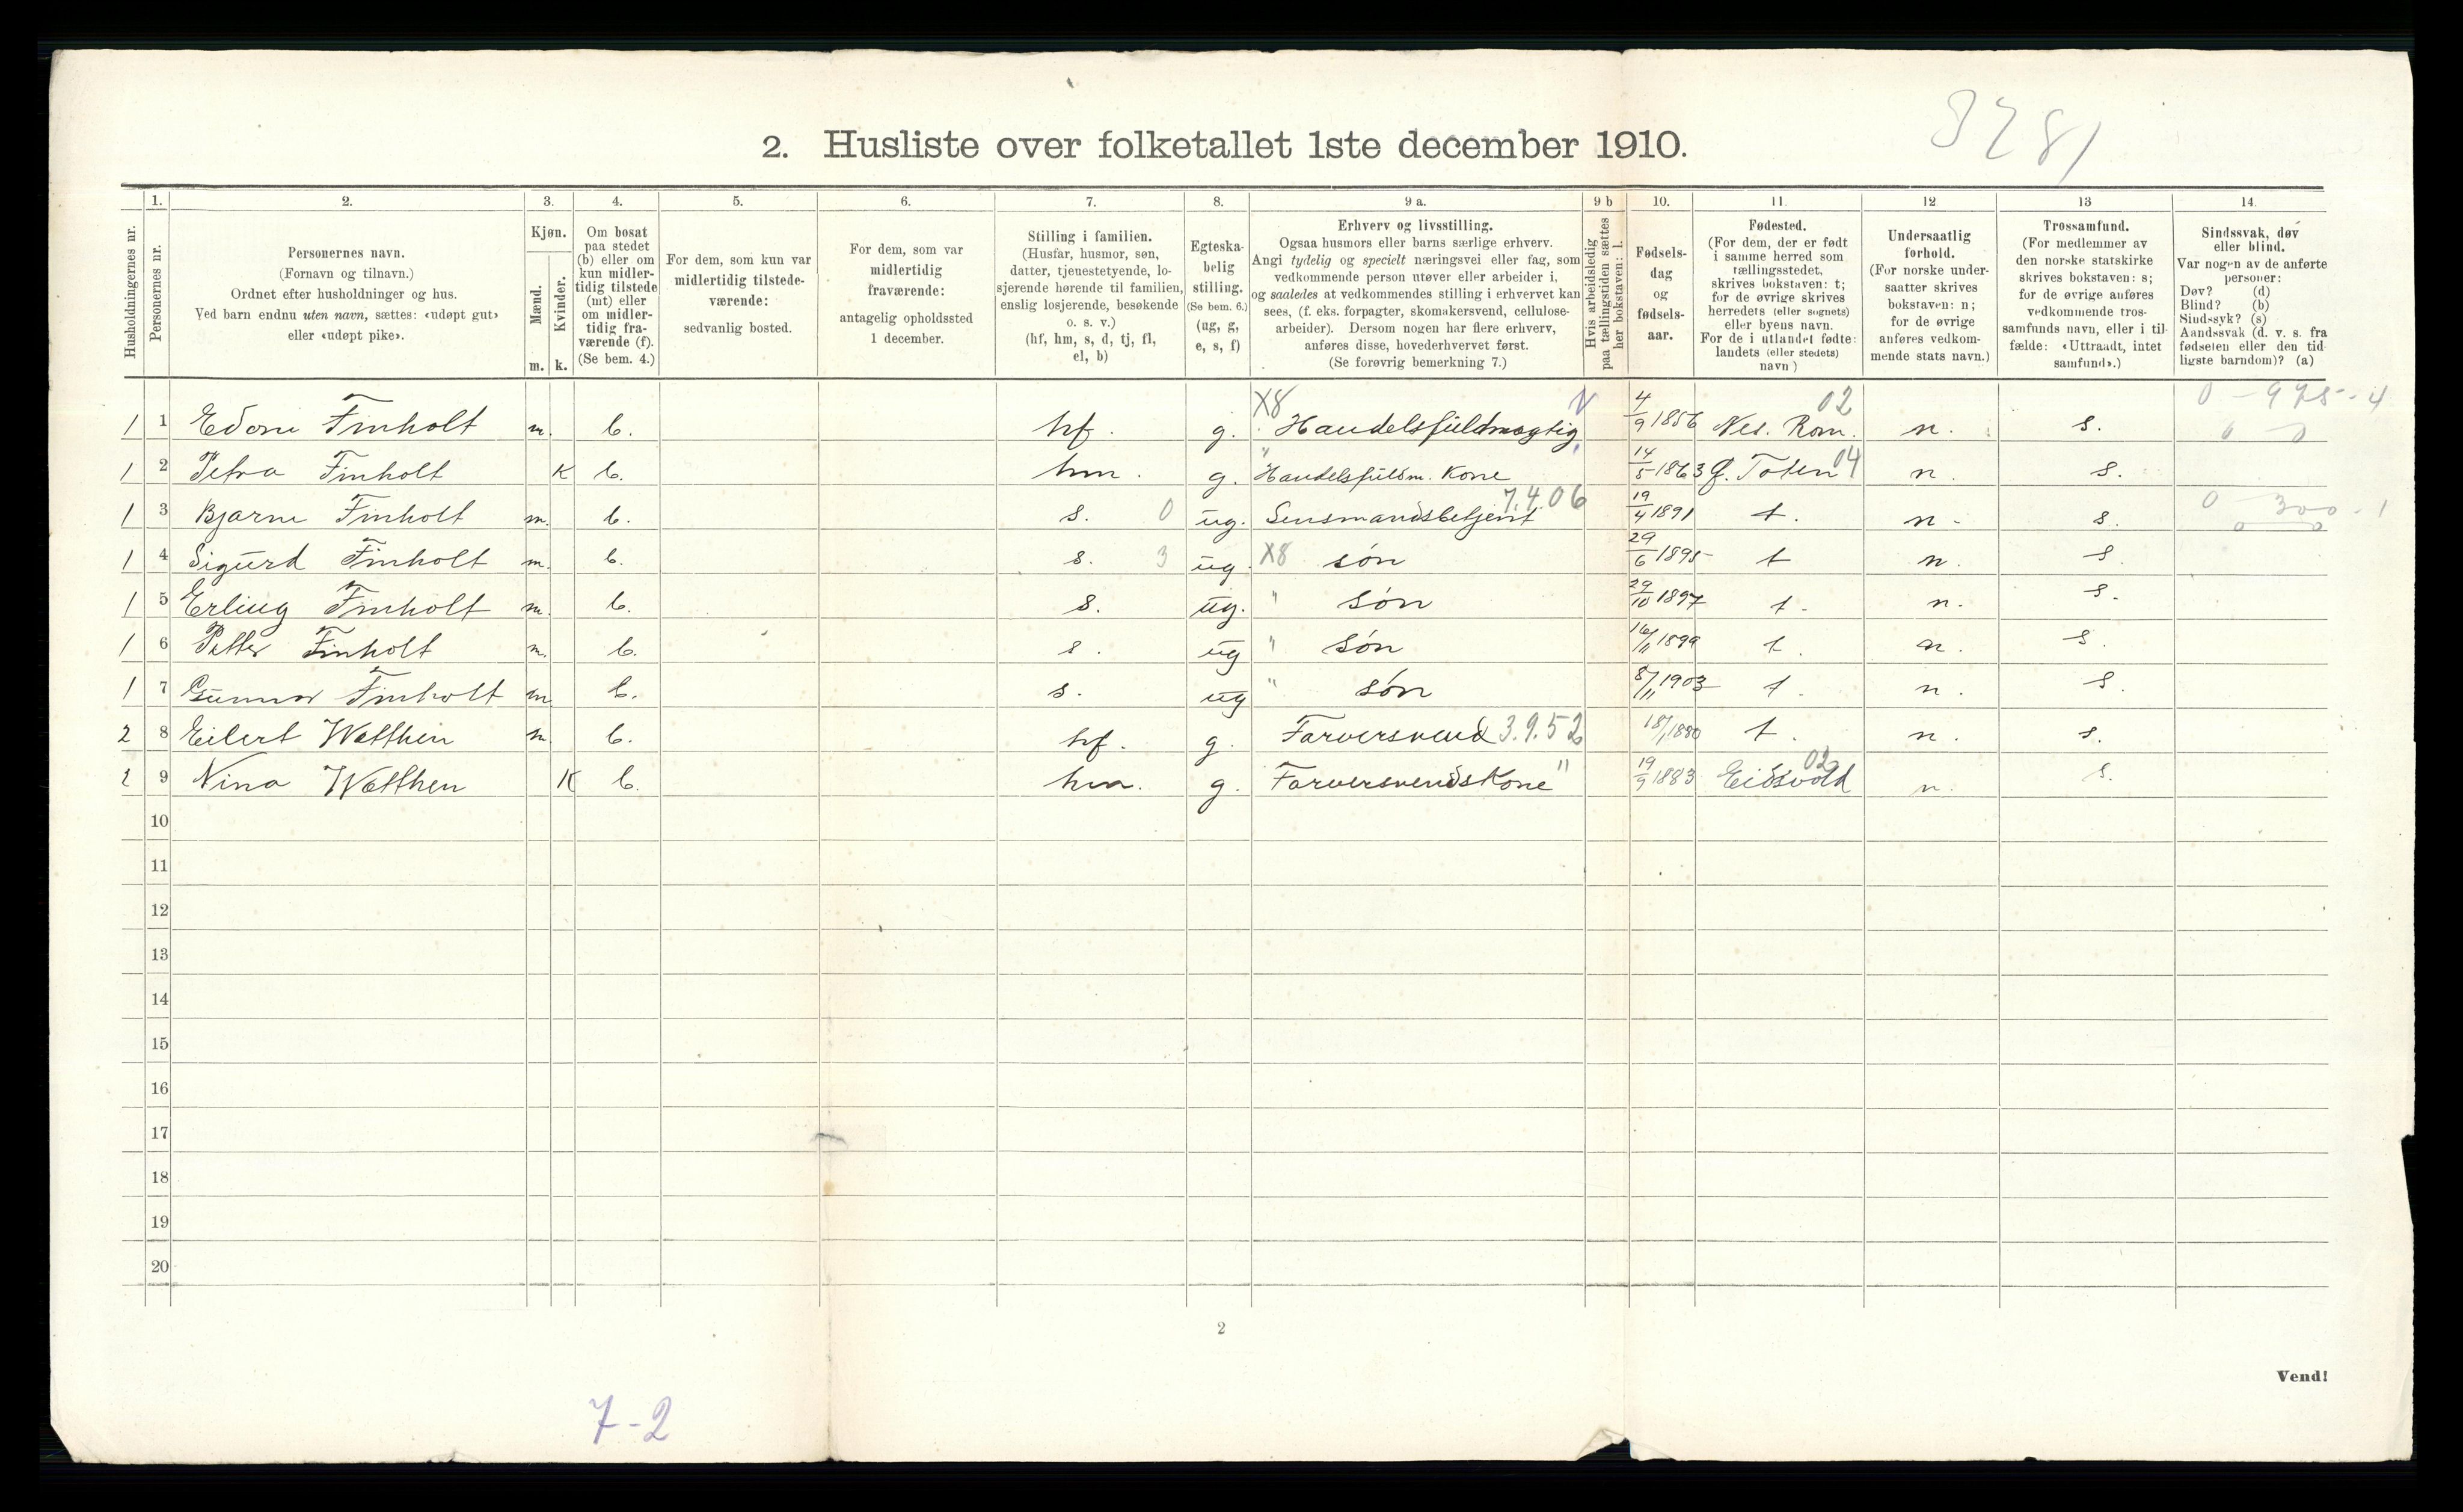 3281
2. Husliste over folketallet 1ste december 1910.
1. 2. 3. 4. 5. 6. 7. 8. 9 a. 9 b 10. 11. 12 13 14.
Husholdningernes nr.
Personernes nr.
Personernes navn.
(Fornavn og tilnavn.)
Ordnet efter husholdninger og hus.
Ved barn endnu uten navn, sættes: «udøpt gut»
eller «udøpt pike».
Kjøn.
Mænd.
Kvinder.
m. k.
Om bosat
paa stedet
(b) eller om
kun midler-
tidig tilstede
(mt) eller
om midler-
tidig fra-
værende (f).
(Se bem. 4.)
For dem, som kun var
midlertidig tilstede-
værende:
sedvanlig bosted.
For dem, som var
midlertidig
fraværende:
antagelig opholdssted
1 december.
Stilling i familien.
(Husfar, husmor, søn,
datter, tjenestetyende, lo-
sjerende hørende til familien,
enslig losjerende, besøkende
o. s. v.)
(hf, hm, s, d, tj, fl,
el, b)
Egteska-
belig
stilling.
(Se bem. 6.)
(ug, g,
e, s, f)
Erhverv og livsstilling.
Ogsaa husmors eller barns særlige erhverv.
Angi tydelig og specielt næringsvei eller fag, som
vedkommende person utøver eller arbeider i,
og saaledes at vedkommendes stilling i erhvervet kan
sees, (f. eks. forpagter, skomakersvend, cellulose-
arbeider). Dersom nogen har flere erhverv,
anføres disse, hovederhvervet først.
(Se forøvrig bemerkning 7.)
Hvis arbeidsledig
paa tællingstiden sættes
her bokstaven: l.
Fødsels-
dag
og
fødsels-
aar.
Fødested.
(For dem, der er født
i samme herred som
tællingsstedet,
skrives bokstaven: t;
for de øvrige skrives
herredets (eller sognets)
eller byens navn.
For de i utlandet fødte:
landets (eller stedets)
navn)
Undersaatlig
forhold.
(For norske under-
saatter skrives
bokstaven: n;
for de øvrige
anføres vedkom-
mende stats navn.)
Trossamfund.
(For medlemmer av
den norske statskirke
skrives bokstaven: s;
for de øvrige anføres
vedkommende tros-
samfunds navn, eller i til-
fælde: «Uttraadt, intet
samfund».)
Sindssvak, døv
eller blind.
Var nogen av de anførte
personer:
Døv? (d)
Blind? (b)
Sindssyk? (s)
Aandssvak (d. v. s. fra
fødselen eller den tid-
ligste barndom)? (a)
X8 02 0 - 975 - 4
1 1 Edoni Finholt m. b. hf. g. Handelsfuldmægtig 4/9 1856 Nes. Rom. n. s. 0 0
1 2 Petra Finholt K b. hm. g. " Handelsfuldm. Kone 14/5 1863 Ø. Toten 04 n. s.
1 3 Bjarne Finholt m. b. s. 0 ug. Lensmandsbetjent 7.4.06 19/4 1891 t. n. s. 0 300 - 1
0 0
1 4 Sigurd Finholt m. b. s. 3 ug. X8 søn 29/6 1895 t n. s
1 5 Erling Finholt m. b. s. ug. " søn 29/10 1897 t. n. s.
1 6 Petter Finholt m. b. s. ug " søn 16/11 1899 t. n. s.
1 7 Gunnar Finholt m b. s. ug " søn 8/11 1903 t. n. s.
2 8 Eilert Wetthen m. b. hf. g. Farversvend 3.9.52 18/1 1880 t. n. s.
2 9 Nina Wetthen K b. hm. g. Farversvends Kone " 19/9 1883 Eidsvold 02 n. s.
10
11
12
13
14
15
16
17
18
19
20
2
Vend!
7-2